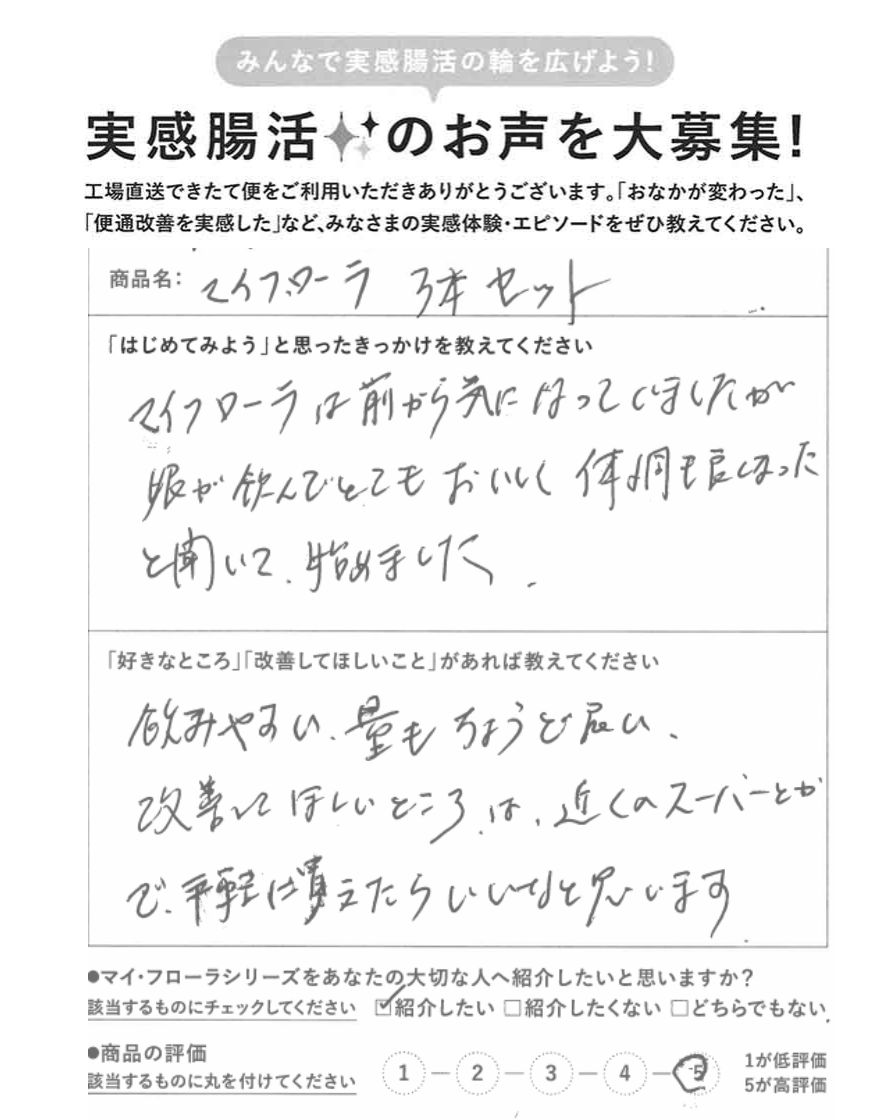 みんなで実感腸活の輪を広げよう!
実感腸活のお声を大募集!
工場直送できたて便をご利用いただきありがとうございます。「おなかが変わった」、
「便通改善を実感した」など、みなさまの実感体験・エピソードをぜひ教えてください。
商品名: マイフローラ 3本セット
「はじめてみよう」と思ったきっかけを教えてください
マイフローラは前から気になっていましたが
娘が飲んでとてもおいしく 体調も良くなった
と聞いて、始めました。
「好きなところ」「改善してほしいこと」があれば教えてください
飲みやすい、量もちょうど良い、
改善してほしいところは、近くのスーパーとか
で、手軽に買えたらいいなと思います
●マイ・フローラシリーズをあなたの大切な人へ紹介したいと思いますか?
該当するものにチェックしてください ☑紹介したい □紹介したくない □どちらでもない
●商品の評価
該当するものに丸を付けてください 1 2 3 4 5 1が低評価
5が高評価